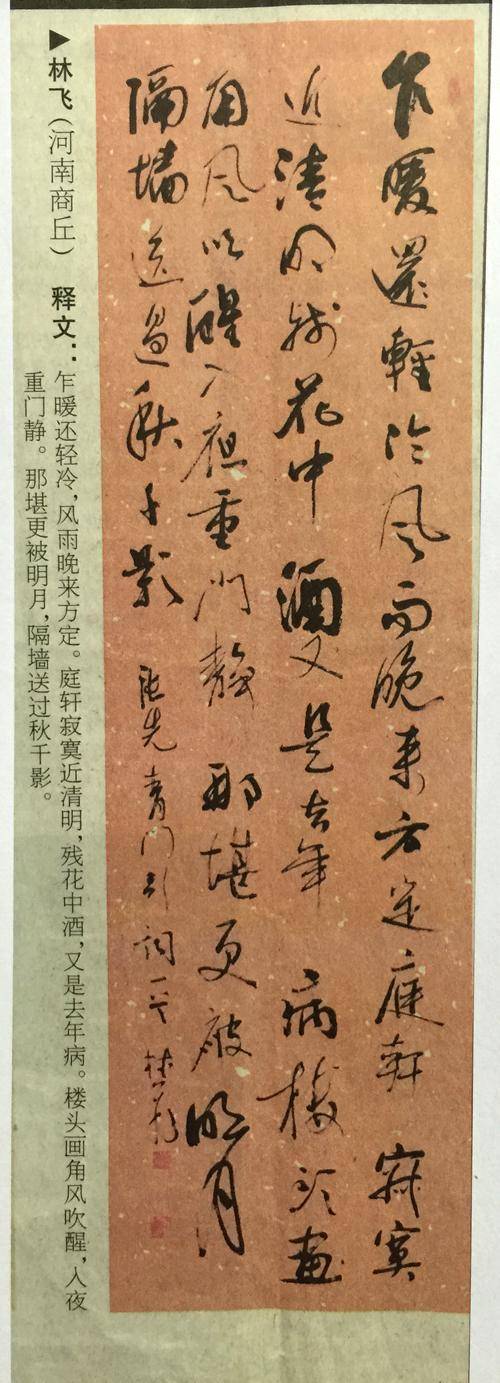 乍暖還輕冷风雨晚来方定庭軒寂寞
近清明残花中酒又是去年病楼头画
角风吹醒入夜重門静那堪更被明月
隔墙送過秋千影
张先青门引词一首 林飞
▶林飞（河南商丘） 释文：
乍暖还轻冷，风雨晚来方定。庭轩寂寞近清明，残花中酒，又是去年病。楼头画角风吹醒，入夜
重门静。那堪更被明月，隔墙送过秋千影。